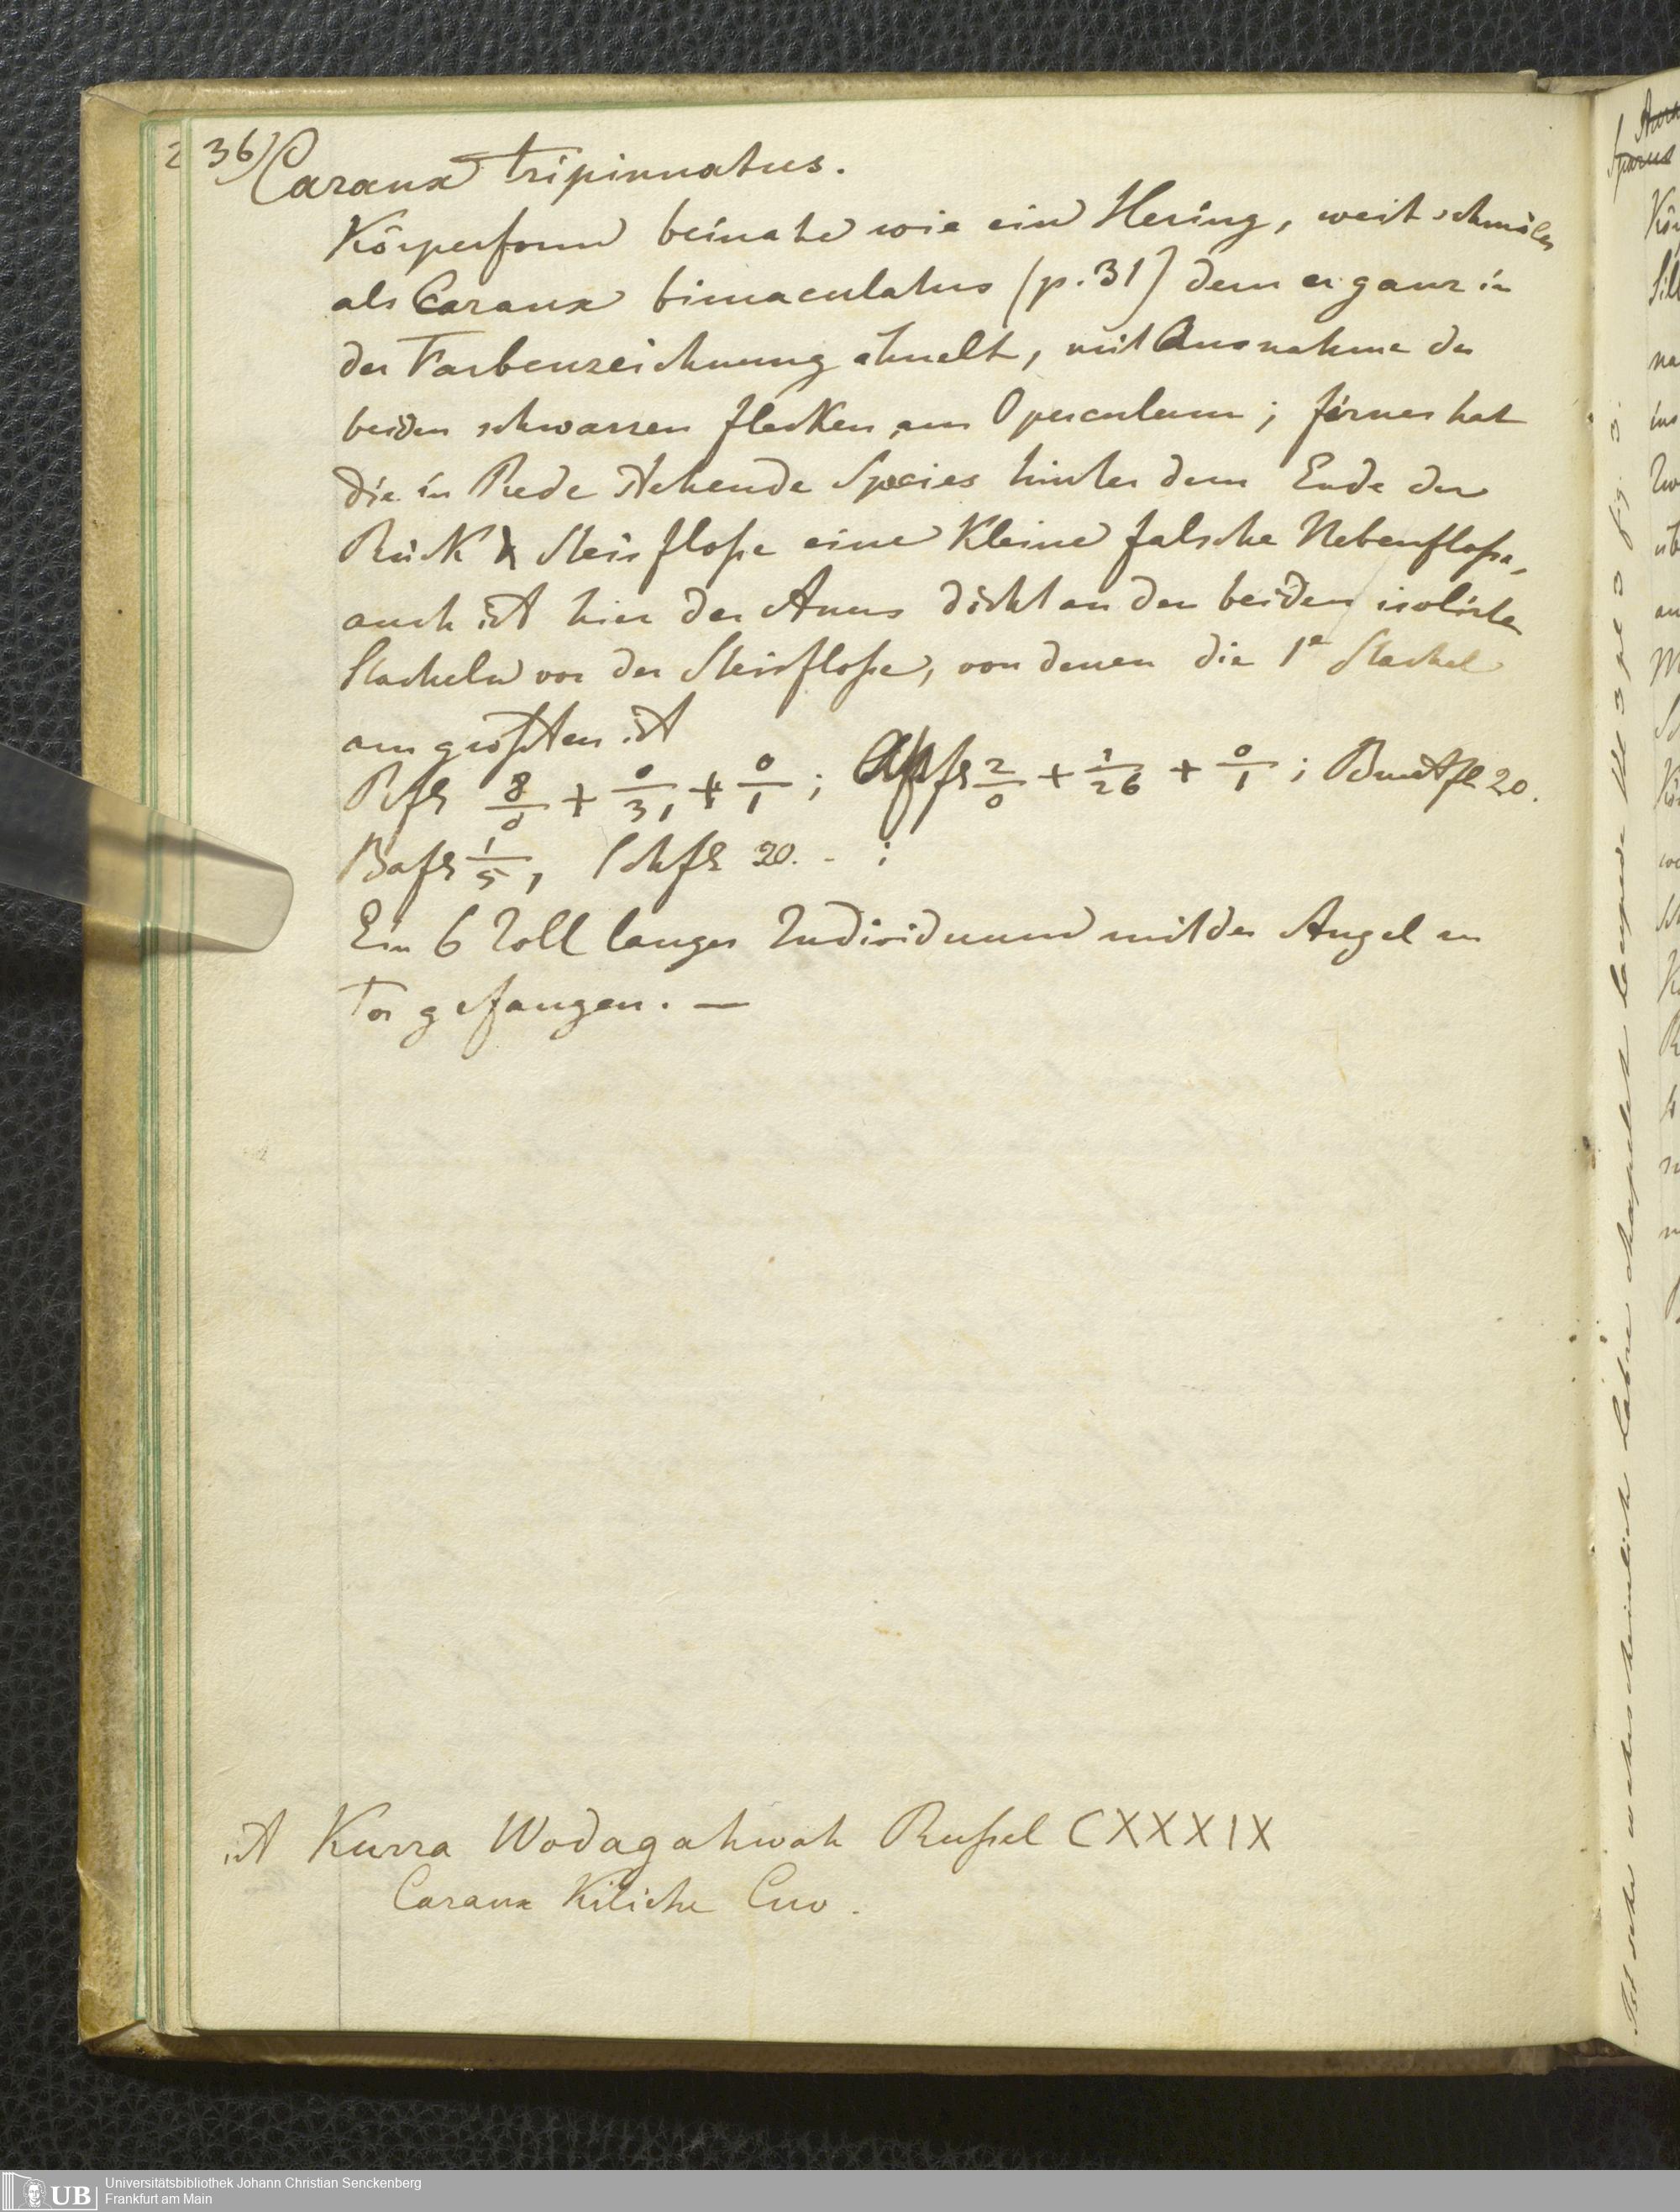 36) Caranx tripinnatus.
Körperform beinahe wie ein Hering, weit schmäler
als Caranx bimaculatus (p. 31) dem er ganz in
der Farbenzeichnung ahnelt, mit Ausnahme der
beiden schwarzen flecken am Operculum; ferner hat
die in Rede stehende Species hinter dem Ende der
Rück & Steisfloße eine Kleine falsche Nebenfloße,
auch ist hier der Anus dicht an den beiden isolirten
Stacheln vor der Steisfloße, von denen die 1e Stachel
am großten ist
Rfl 8/0 + 0/31 + 0/1 ; Afl 2/0 + 1/26 + 0/1 ; Brustfl 20.
Bafl 1/5, Schfl 20.
Ein 6 Zoll langes Individuum mit der Angel in
Tor gefangen. —
ist Kurra Wodagahwah Rußel CXXXIX
Caranx Kiliche Cuv.
Universitätsbibliothek Johann Christian Senckenberg
Frankfurt am Main
UB